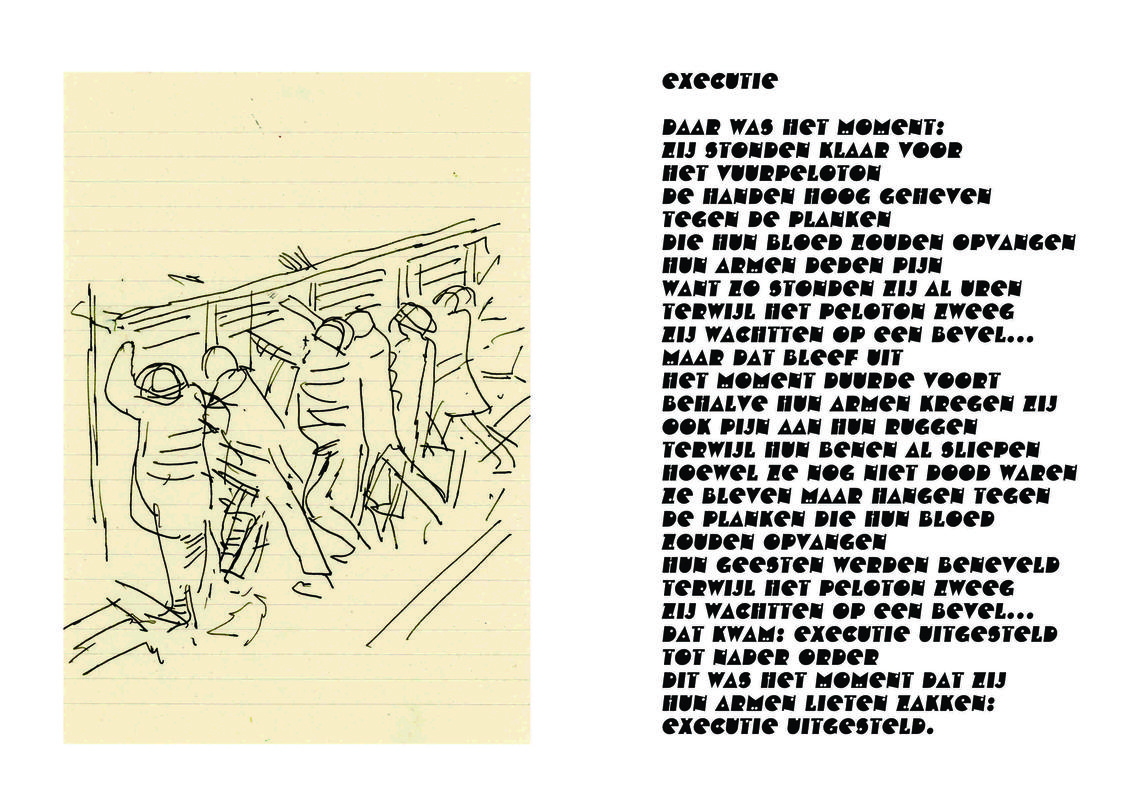 EXECUTIE
DAAR WAS HET MOMENT:
ZIJ STONDEN KLAAR VOOR
HET VUURPELOTON
DE HANDEN HOOG GEHEVEN
TEGEN DE PLANKEN
DIE HUN BLOED ZOUDEN OPVANGEN
HUN ARMEN DEDEN PIJN
WANT ZO STONDEN ZIJ AL UREN
TERWIJL HET PELOTON ZWEEG
ZIJ WACHTTEN OP EEN BEVEL...
MAAR DAT BLEEF UIT
HET MOMENT DUURDE VOORT
BEHALVE HUN ARMEN KREGEN ZIJ
OOK PIJN AAN HUN RUGGEN
TERWIJL HUN BENEN AL SLIEPEN
HOEWEL ZE NOG NIET DOOD WAREN
ZE BLEVEN MAAR HANGEN TEGEN
DE PLANKEN DIE HUN BLOED
ZOUDEN OPVANGEN
HUN GEESTEN WERDEN BENEVELD
TERWIJL HET PELOTON ZWEEG
ZIJ WACHTTEN OP EEN BEVEL...
DAT KWAM: EXECUTIE UITGESTELD
TOT NADER ORDER
DIT WAS HET MOMENT DAT ZIJ
HUN ARMEN LIETEN ZAKKEN:
EXECUTIE UITGESTELD.